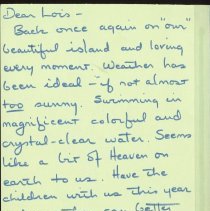 Dear Lois -
Back once again on "our"
beautiful island and loving
every moment. Weather has
been ideal - if not almost
too sunny. Swimming in
magnificent colorful and
crystal-clear water. Seems
like a bit of Heaven on
earth to us. Have the
children with us this year
better